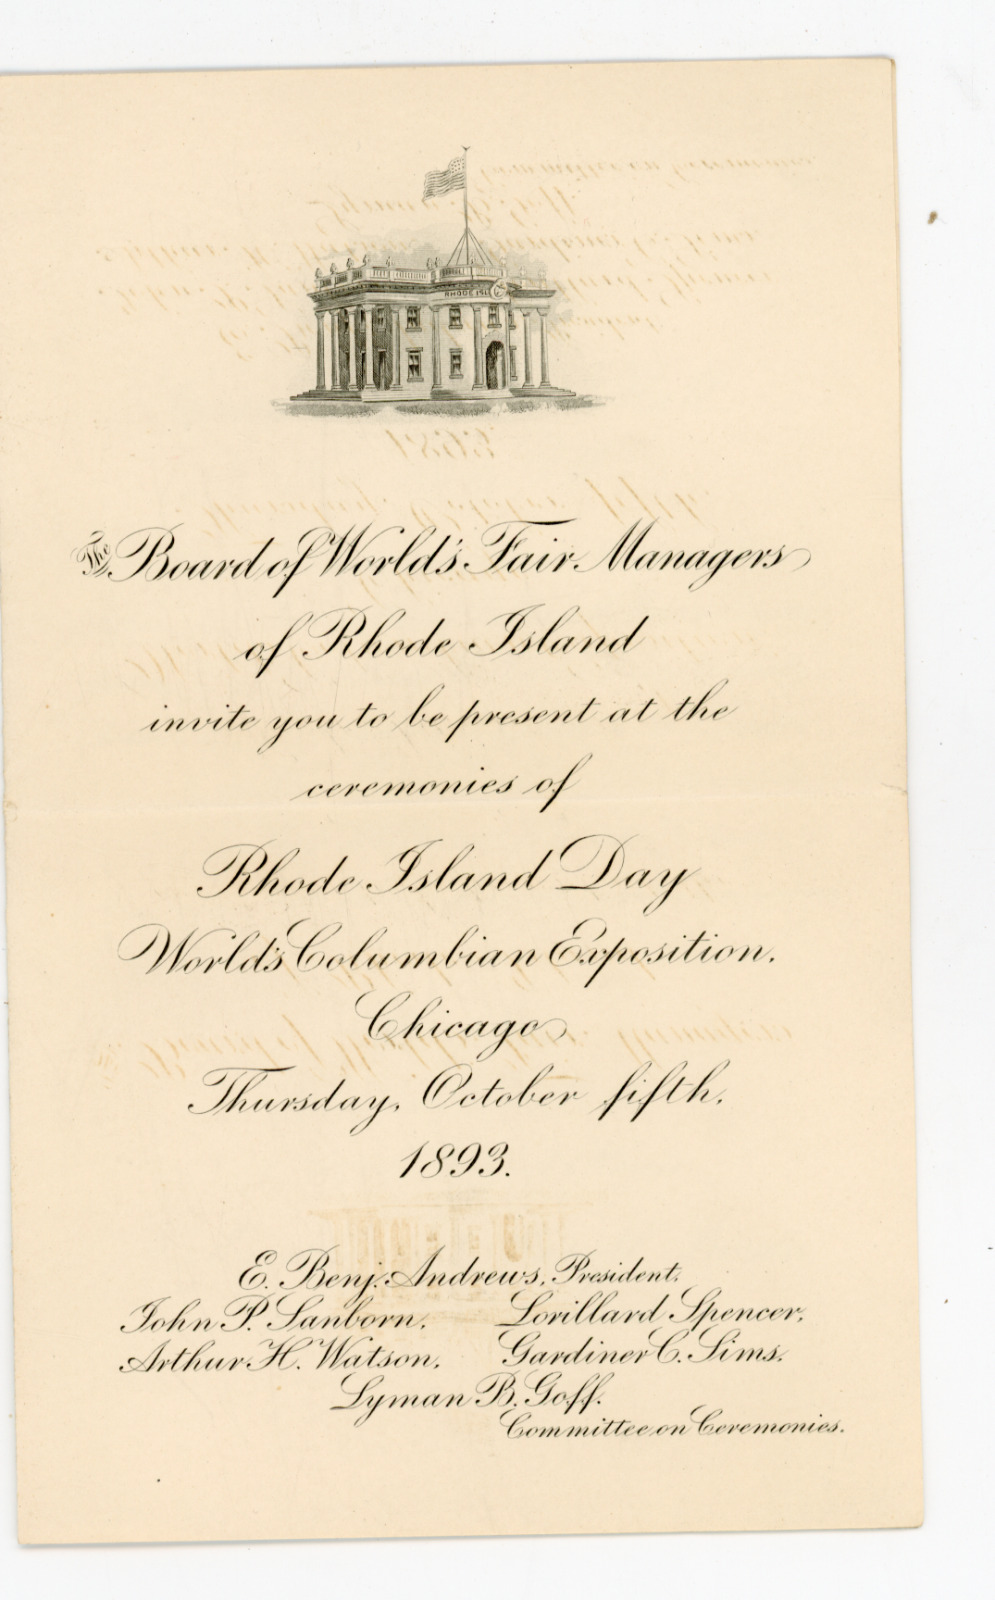 RHODE ISL
The Board of World's Fair Managers
of Rhode Island
invite you to be present at the
ceremonies of
Rhode Island Day
World's Columbian Exposition,
Chicago
Thursday, October fifth,
1893.
E. Benj. Andrews, President,
John P. Sanborn, Lorillard Spencer,
Arthur H. Watson, Gardiner C. Sims,
Lyman B. Goff.
Committee on Ceremonies.